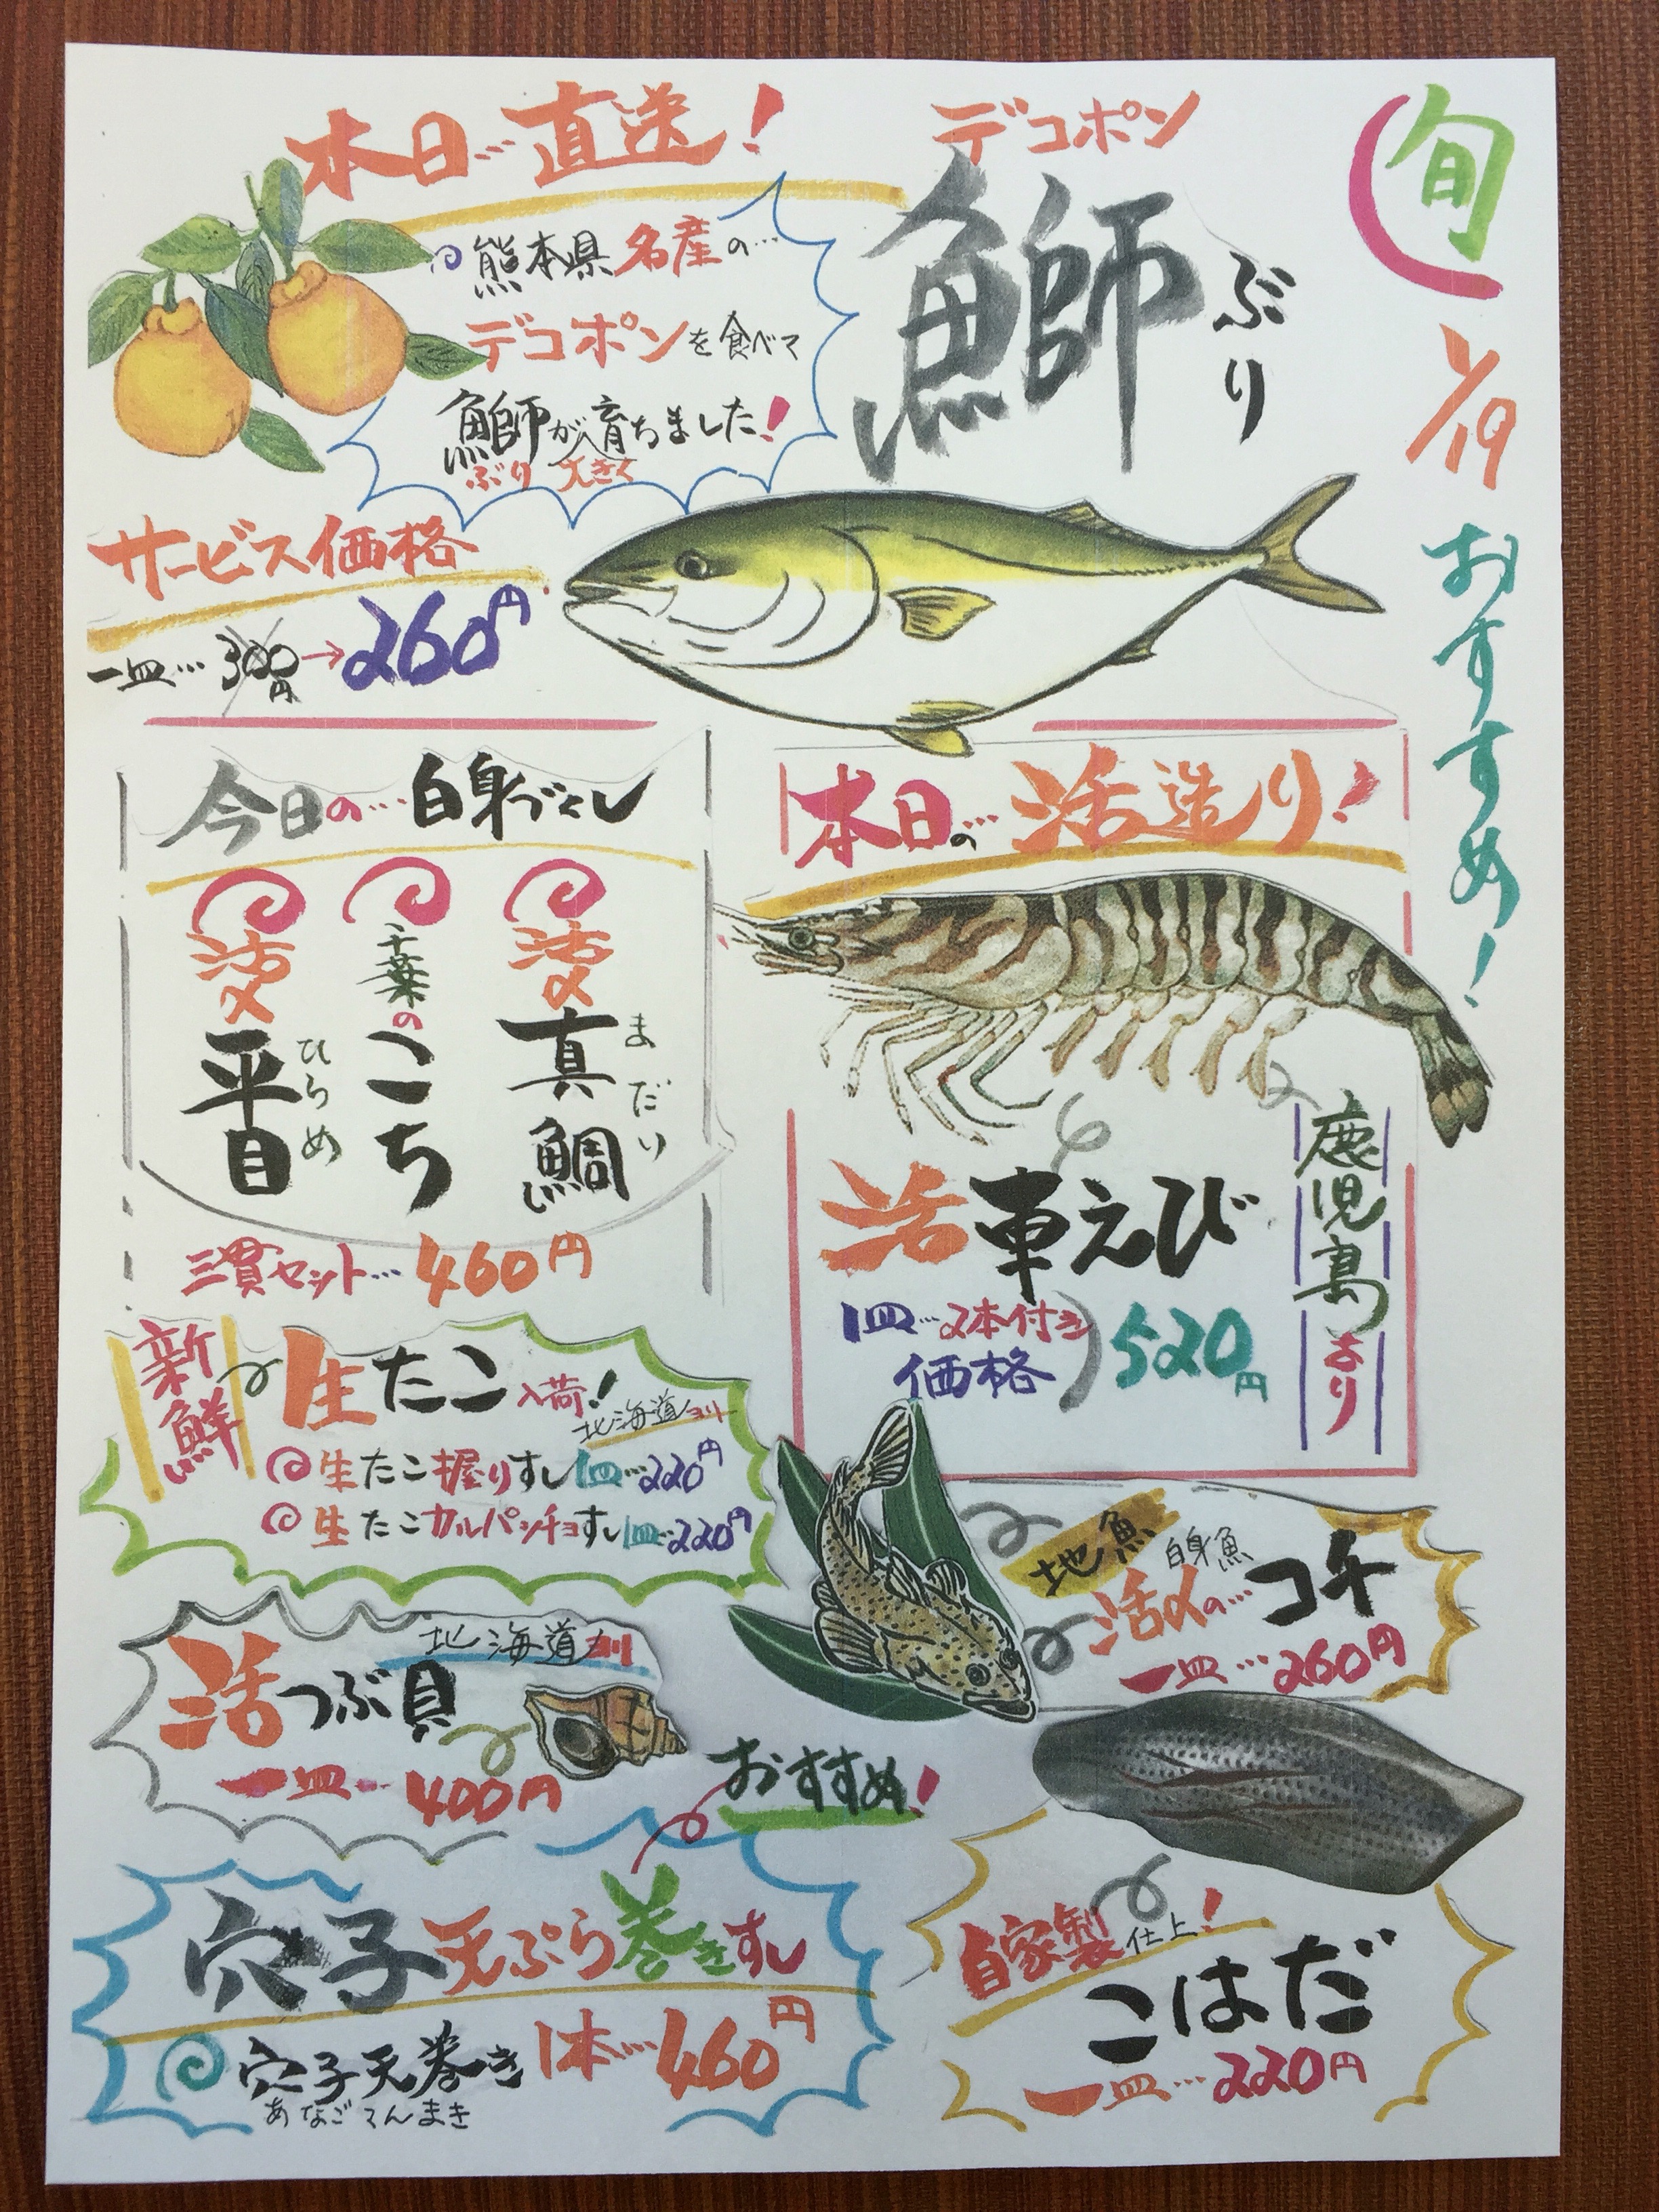 旬
1/19
おすすめ!
本日…直送!
デコポン
鰤
ぶり
熊本県名産の…
デコポンを食べて
鰤が育ちました!
ぶり 大きく
サービス価格
一皿…300円→260円
今日の…白身づくし
活〆真鯛
まだい
千葉のこち
活〆平目
ひらめ
三貫セット…460円
本日の…活造り!
活車えび
鹿児島より
1皿…2本付き
価格
520円
新鮮
生たこ入荷!
北海道ヨリ
生たこ握りすし1皿…220円
生たこカルパッチョすし1皿…220円
地魚
白身魚
活〆の…コチ
一皿…260円
北海道ヨリ
活つぶ貝
一皿…400円
おすすめ!
穴子天ぷら巻きすし
穴子天巻き 1本…460円
あなごてんまき
自家製仕上!
こはだ
一皿…220円